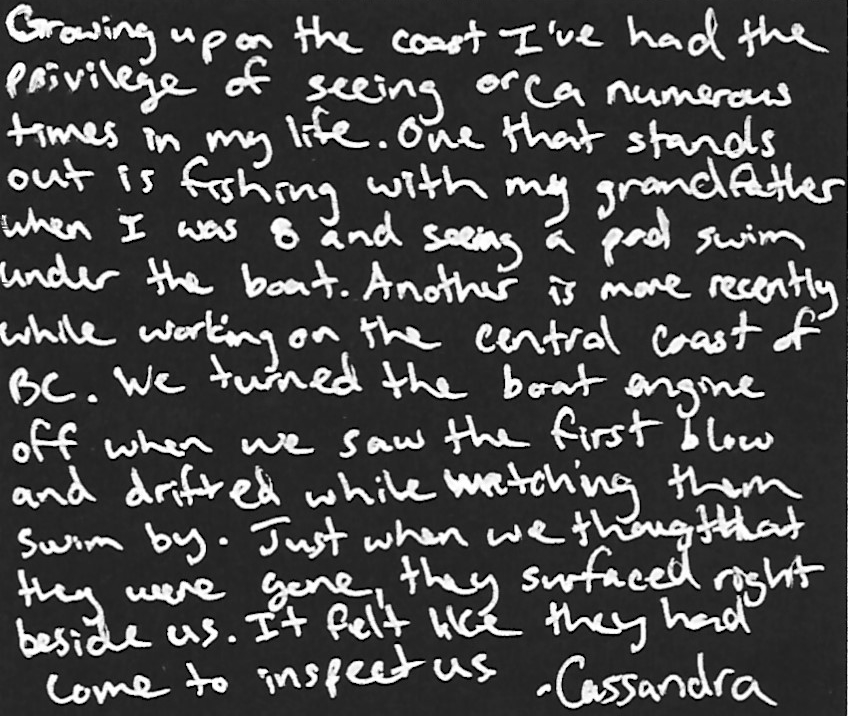 Growing up on the coast I've had the
privilege of seeing orca numerous
times in my life. One that stands
out is fishing with my grandfather
when I was 8 and seeing a pod swim
under the boat. Another is more recently
while working on the central coast of
BC. We turned the boat engine
off when we saw the first blow
and drifted while watching them
swim by. Just when we thought that
they were gone, they surfaced right
beside us. It felt like they had
come to inspect us -Cassandra